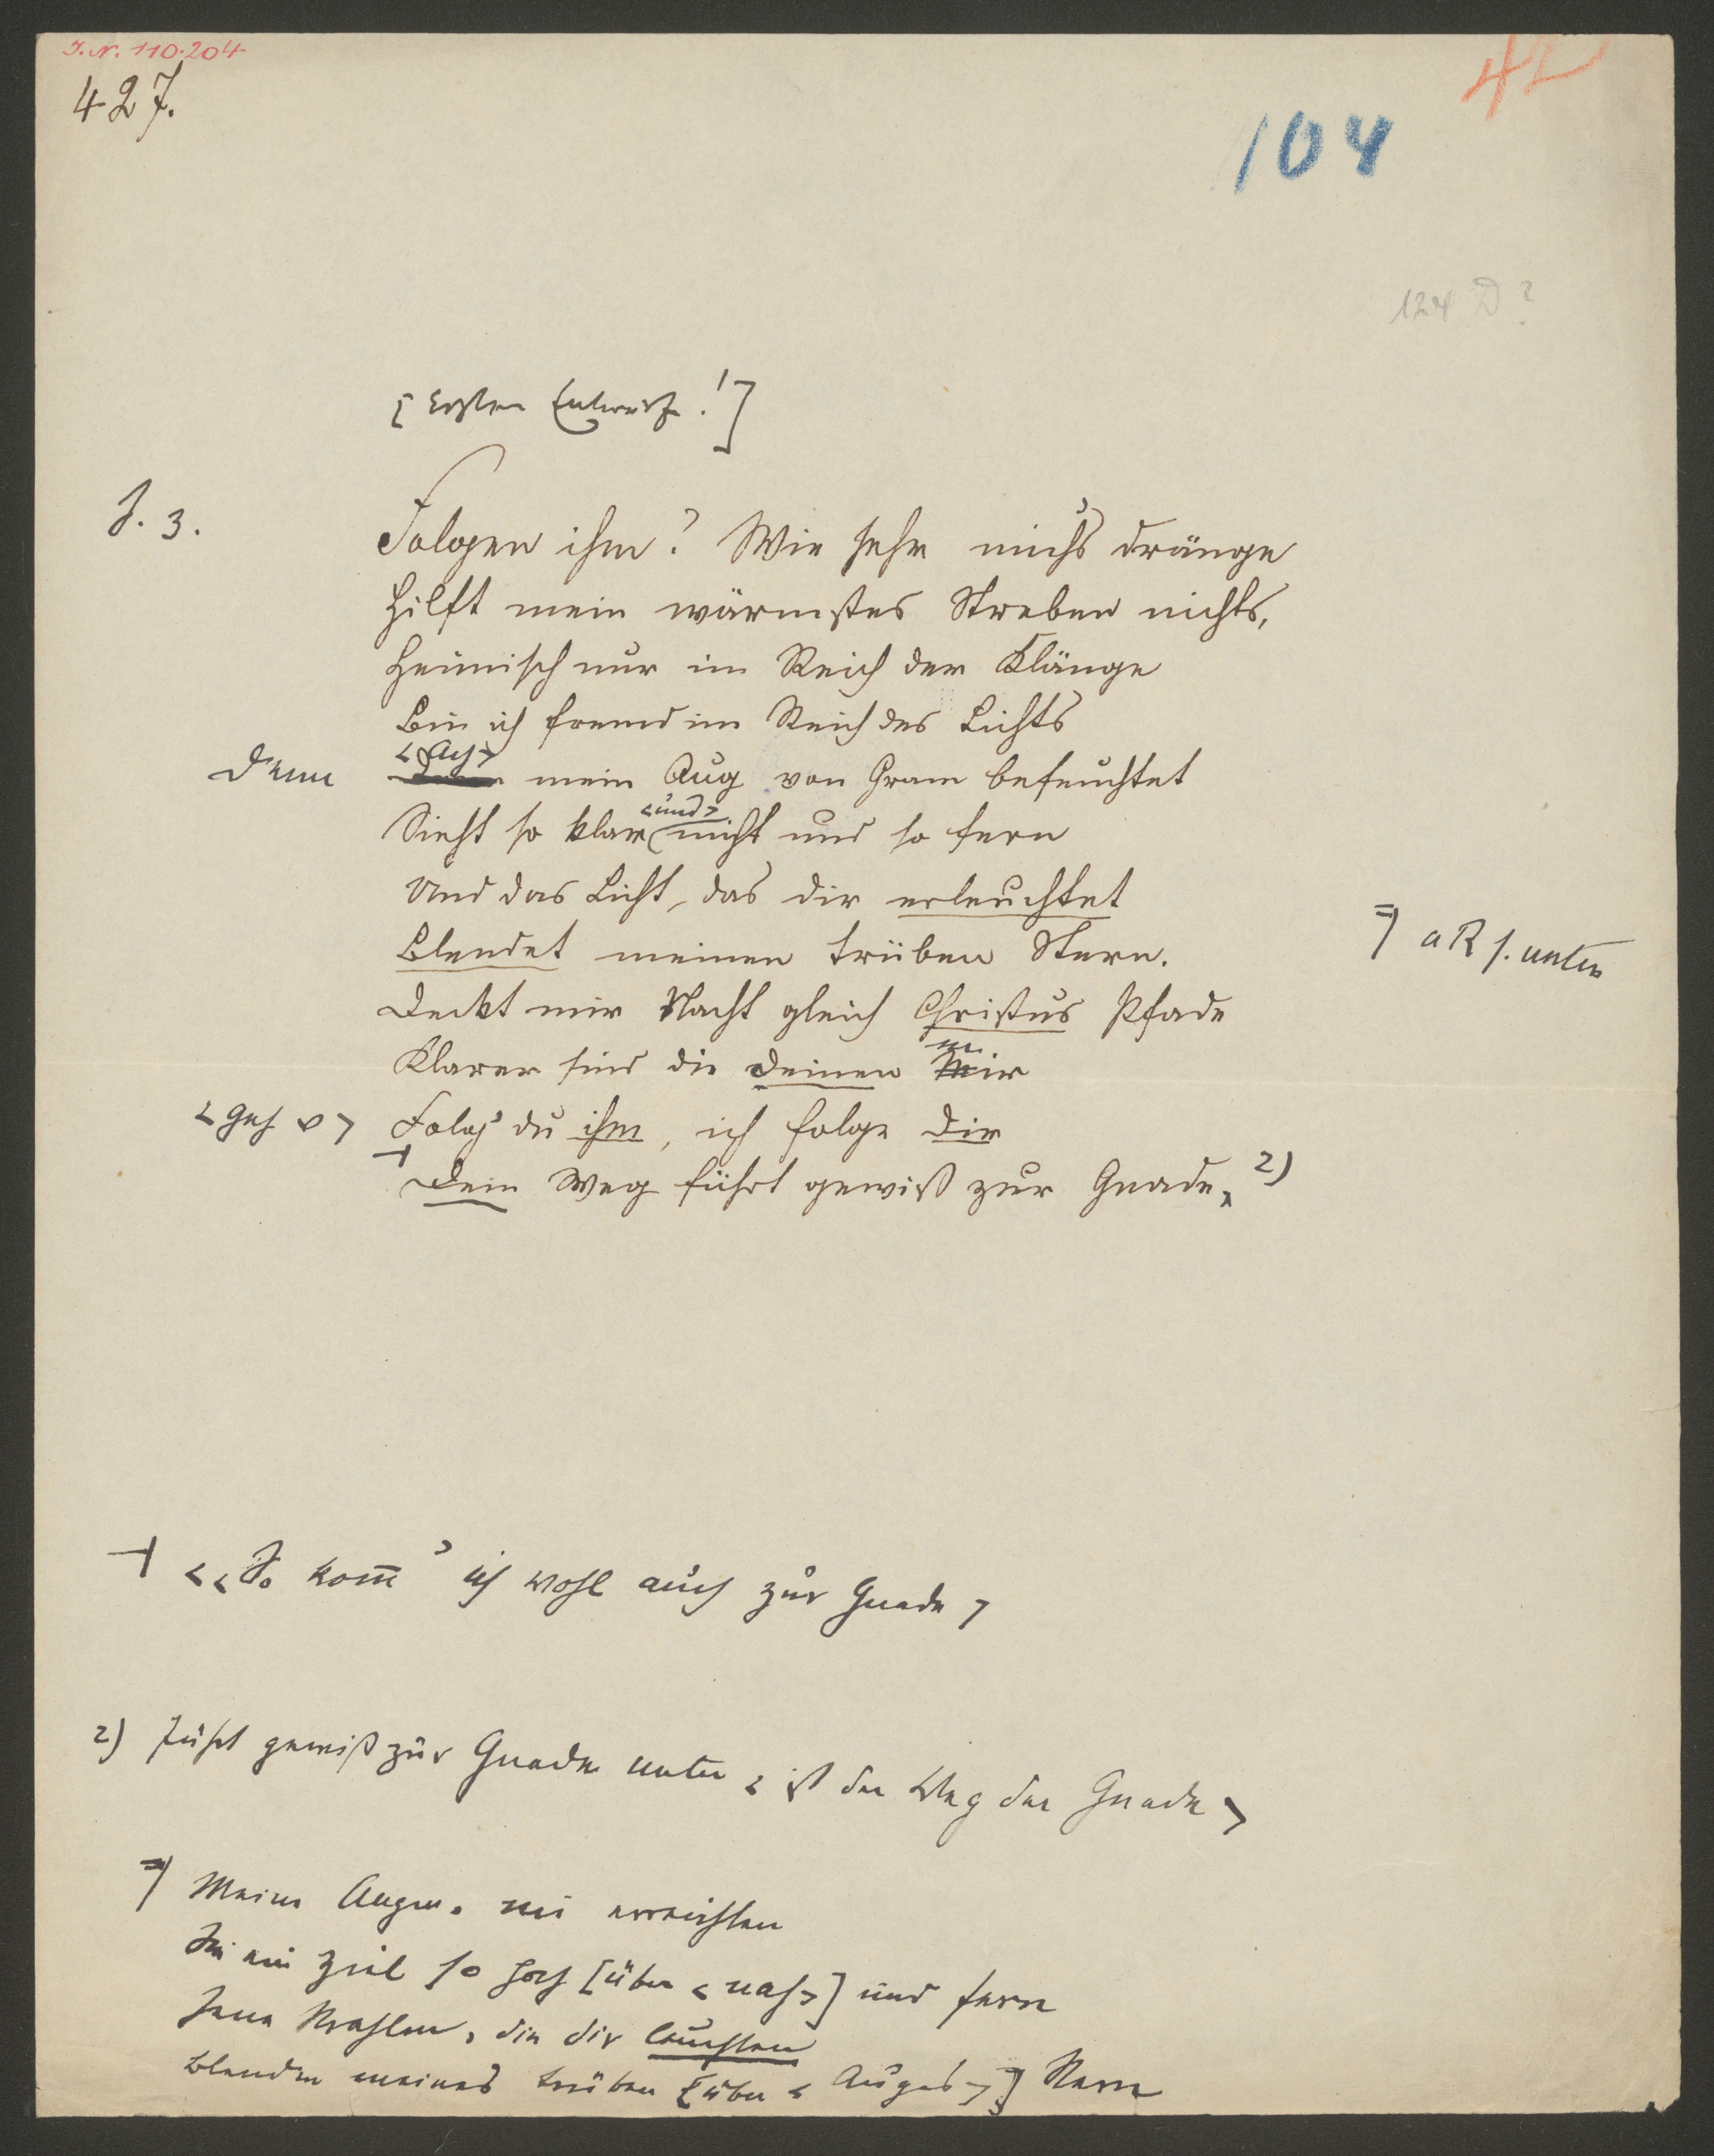 J. N. 110.204
427.
42
104
124 D?
[Erster Entwurf!]
S. 3.
Folgen ihm? Wie sehr mich's dränge
Hilft mein wärmstes Streben nichts,
Heimisch nur im Reich der Klänge
Bin ich fremd im Reich des Lichts
<Ach>
Denn mein Aug von Gram befeuchtet
<und>
Sieht so klar nicht und so fern
Und das Licht, das dir erleuchtet
Blendet meinen trüben Stern.
=| aR s. unten
Deckt mir Nacht gleich Christus Pfade
m
Klarer sind die Deinen Mir
<Geh > Folg' du ihm, ich folge Dir
⊣ Dein Weg führt gewiß zur Gnade. 2)
⊣ <<So kom̄' ich wohl auch zur Gnade>
2) führt gewiß zur Gnade unter <ist der Weg der Gnade>
=| Meine Augen, nie erreichten
Sie ein Ziel so hoch [über <nah>] und fern
Jene Strahlen, die dir leuchten
Blenden meines trüben [über <Auges>] Stern